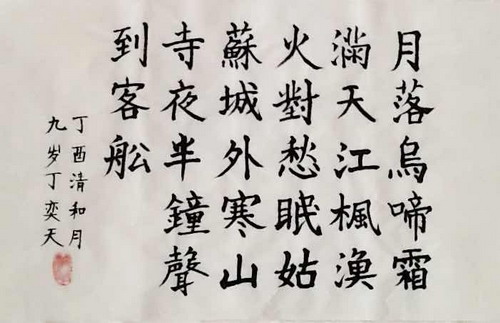 月落烏啼霜
滿天江楓漁
火對愁眠姑
蘇城外寒山
寺夜半鐘聲
到客舩
丁酉清和月
九岁丁奕天